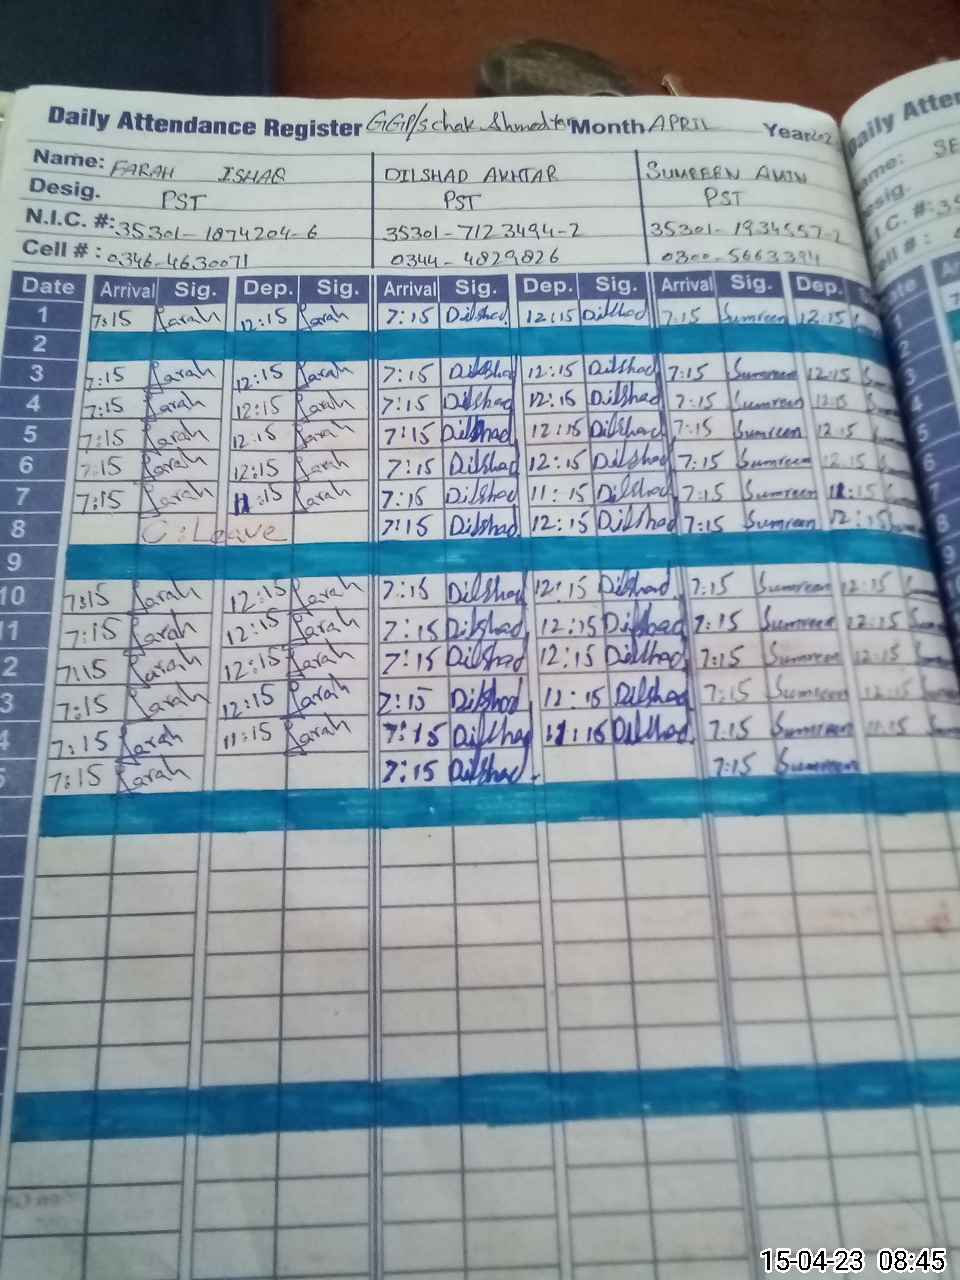 Daily Attendance Register GGP/s chak Ahmed Month APRIL Year 202
Name: FARAH ISHAQ DILSHAD AKHTAR SUMREEN AMIN
Desig. PST PST PST
N.I.C. #: 35301-1874204-6 35301-7123494-2 35301-1934557-2
Cell #: 0346-4630071 0344-4829826 0300-5663394
Date Arrival Sig. Dep. Sig. Arrival Sig. Dep. Sig. Arrival Sig. Dep.
1 7:15 Farah 12:15 Farah 7:15 Dilshad 12:15 Dilshad 7:15 Sumreen 12:15
2
3 7:15 Farah 12:15 Farah 7:15 Dilshad 12:15 Dilshad 7:15 Sumreen 12:15
4 7:15 Farah 12:15 Farah 7:15 Dilshad 12:15 Dilshad 7:15 Sumreen 12:15
5 7:15 Farah 12:15 Farah 7:15 Dilshad 12:15 Dilshad 7:15 Sumreen 12:15
6 7:15 Farah 12:15 Farah 7:15 Dilshad 12:15 Dilshad 7:15 Sumreen 12:15
7 7:15 Farah 11:15 Farah 7:15 Dilshad 11:15 Dilshad 7:15 Sumreen 11:15
8 C:Leave 7:15 Dilshad 12:15 Dilshad 7:15 Sumreen 12:15
9
10 7:15 Farah 12:15 Farah 7:15 Dilshad 12:15 Dilshad 7:15 Sumreen 12:15
11 7:15 Farah 12:15 Farah 7:15 Dilshad 12:15 Dilshad 7:15 Sumreen 12:15
2 7:15 Farah 12:15 Farah 7:15 Dilshad 12:15 Dilshad 7:15 Sumreen 12:15
3 7:15 Farah 12:15 Farah 7:15 Dilshad 12:15 Dilshad 7:15 Sumreen 12:15
4 7:15 Farah 11:15 Farah 7:15 Dilshad 11:15 Dilshad 7:15 Sumreen 11:15
5 7:15 Farah 7:15 Dilshad 7:15 Sumreen
15-04-23 08:45